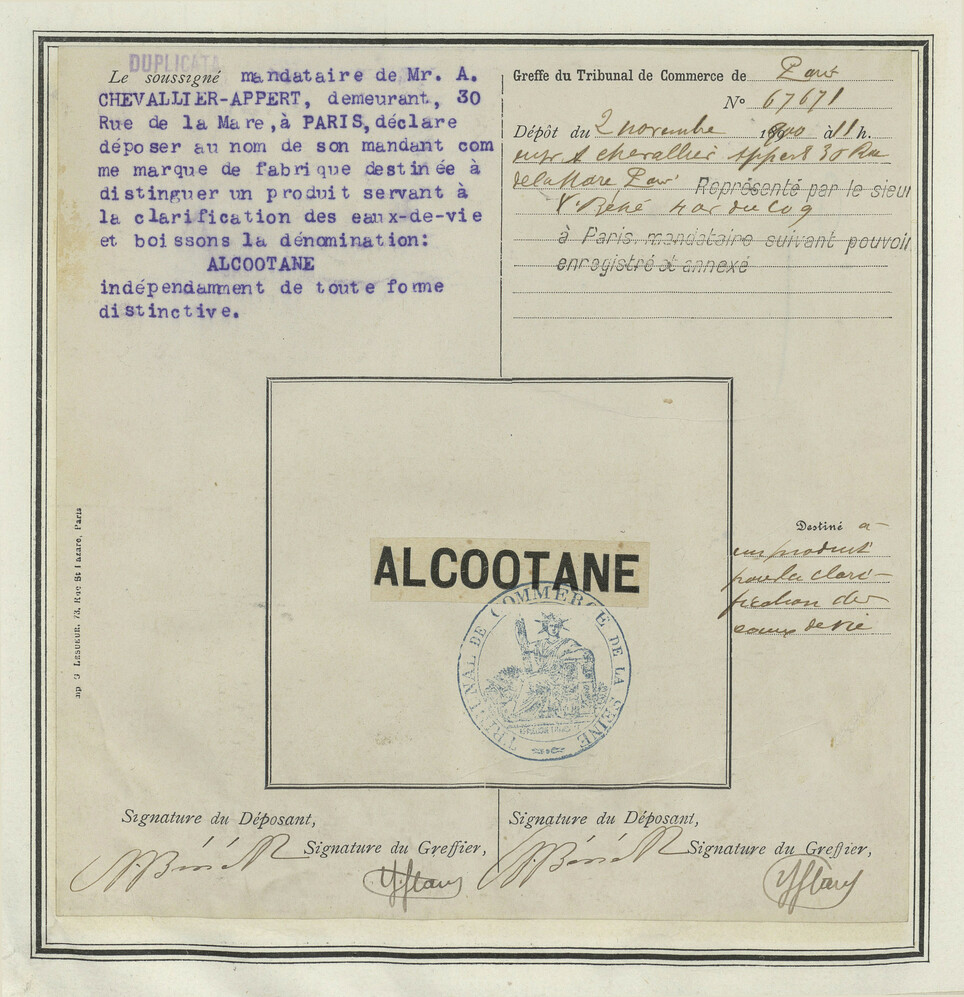 DUPLICATA
Le soussigné mandataire de Mr. A.
CHEVALLIER-APPERT, demeurant, 30
Rue de la Mare, à PARIS, déclare
déposer au nom de son mandant com
me marque de fabrique destinée à
distinguer un produit servant à
la clarification des eaux-de-vie
et boissons la dénomination:
ALCOOTANE
indépendamment de toute forme
distinctive.
Greffe du Tribunal de Commerce de Paris
No 67671
Dépôt du 2 novembre 1900 à 11 h.
A chevallier Appert 30 Rue
de la Mare Paris Représenté par le sieur
à Paris, mandataire suivant pouvoir
enregistré et annexé
Destiné a
un produit
pour la clari-
fication des
eaux de vie
ALCOOTANE
TRIBUNAL DE COMMERCE DE LA SEINE
RÉPUBLIQUE FRANÇAISE
Imp G LESUEUR, 73, Rue St Lazare, Paris
Signature du Déposant,
Signature du Greffier,
Signature du Déposant,
Signature du Greffier,